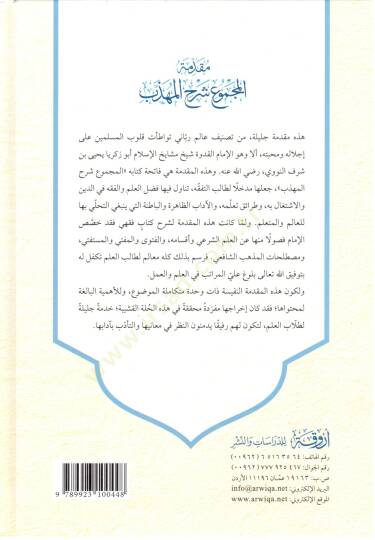 مقدمة
المجموع شرح المهذب
هذه مقدمة جليلة، من تصنيف عالم ربّاني تواطأت قلوب المسلمين على
إجلاله ومحبته، ألا وهو الإمام القدوة شيخ مشايخ الإسلام أبو زكريا يحيى بن
شرف النووي، رضي الله عنه. وهذه المقدمة هي فاتحة كتابه «المجموع شرح
المهذب»، جعلها مدخلًا لطالب التفقّه، تناول فيها فضل العلم والفقه في الدين
والاشتغال به، وطرائق تعلّمه، والآداب الظاهرة والباطنة التي ينبغي التحلّي بها
للعالم والمتعلم. ولمّا كانت هذه المقدمة لشرح كتابٍ فقهي فقد خصّص
الإمام فصولًا منها عن العلم الشرعي وأقسامه، والفتوى والمفتي والمستفتي،
ومصطلحات المذهب الشافعي. فرسم بذلك كله معالم لطالب العلم تكفل له
بتوفيق الله تعالى بلوغ عليّ المراتب في العلم والعمل.
ولكون هذه المقدمة النفيسة ذات وحدة متكاملة الموضوع، وللأهمية البالغة
لمحتواها؛ فقد كان إخراجها مفردَةً محققةً في هذه الحُلة القشيبة؛ خدمةً جليلةً
لطلّاب العلم، لتكون لهم رفيقًا يدمنون النظر في معانيها والتأدّب بآدابها.
أروقة للدراسات والنشر
رقم الهاتف: ٤ ٦ ٥ ٣ ٦ ١ ٥ ٦ (٠٠٩٦٢)
رقم الجوال: ٤٦٧ ٩٢٥ ٧٧٧ (٠٠٩٦٢)
ص.ب: ١٩١٦٣ عمّان ١١١٩٦ الأردن
البريد الإلكتروني: info@arwiqa.net
الموقع الإلكتروني: www.arwiqa.net
9 789923 100448